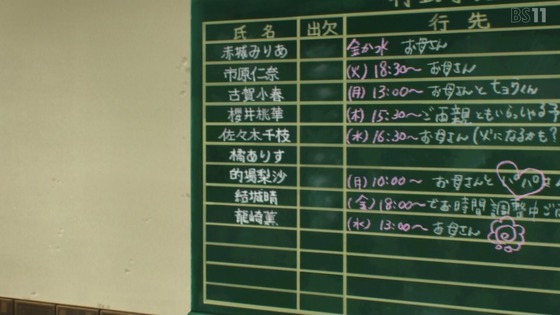 BS11
氏名 出欠 行先
赤城みりあ 金か水 お母さん
市原仁奈 (火) 18:30〜 お母さん
古賀小春 (月) 13:00〜 お母さんとヒョウくん
櫻井桃華 (木) 15:30〜 ご両親ともいらっしゃる予
佐々木千枝 (水) 16:30〜 お母さん(火になるかも?
橘ありす
的場梨沙 (月) 10:00〜 お母さんとパパさん
結城晴 (金) 18:00〜 でお時間調整中
龍崎薫 (水) 13:00〜 お母さん